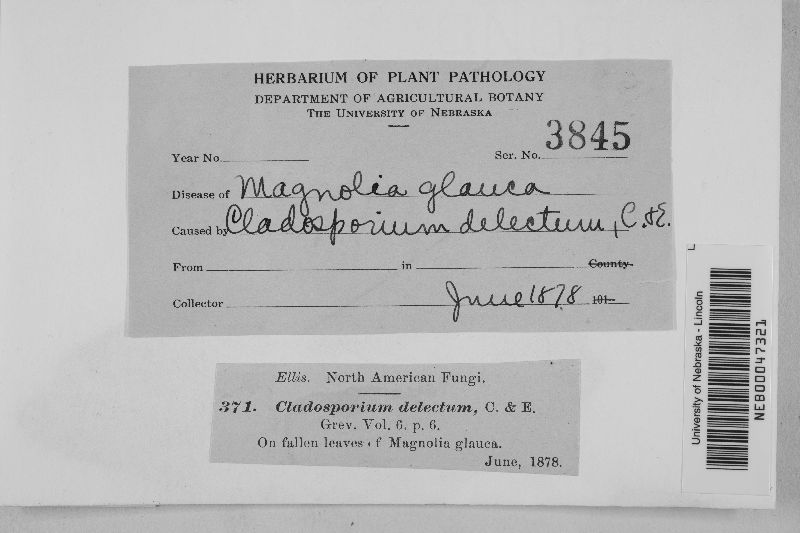 HERBARIUM OF PLANT PATHOLOGY
DEPARTMENT OF AGRICULTURAL BOTANY
THE UNIVERSITY OF NEBRASKA
Year No. Ser. No. 3845
Disease of Magnolia glauca
Caused by Cladosporium delectum, C. & E.
From in County
Collector June 1878 191
Ellis. North American Fungi.
371. Cladosporium delectum, C. & E.
Grev. Vol. 6. p. 6.
On fallen leaves of Magnolia glauca.
June, 1878.
University of Nebraska - Lincoln
NEB00047321